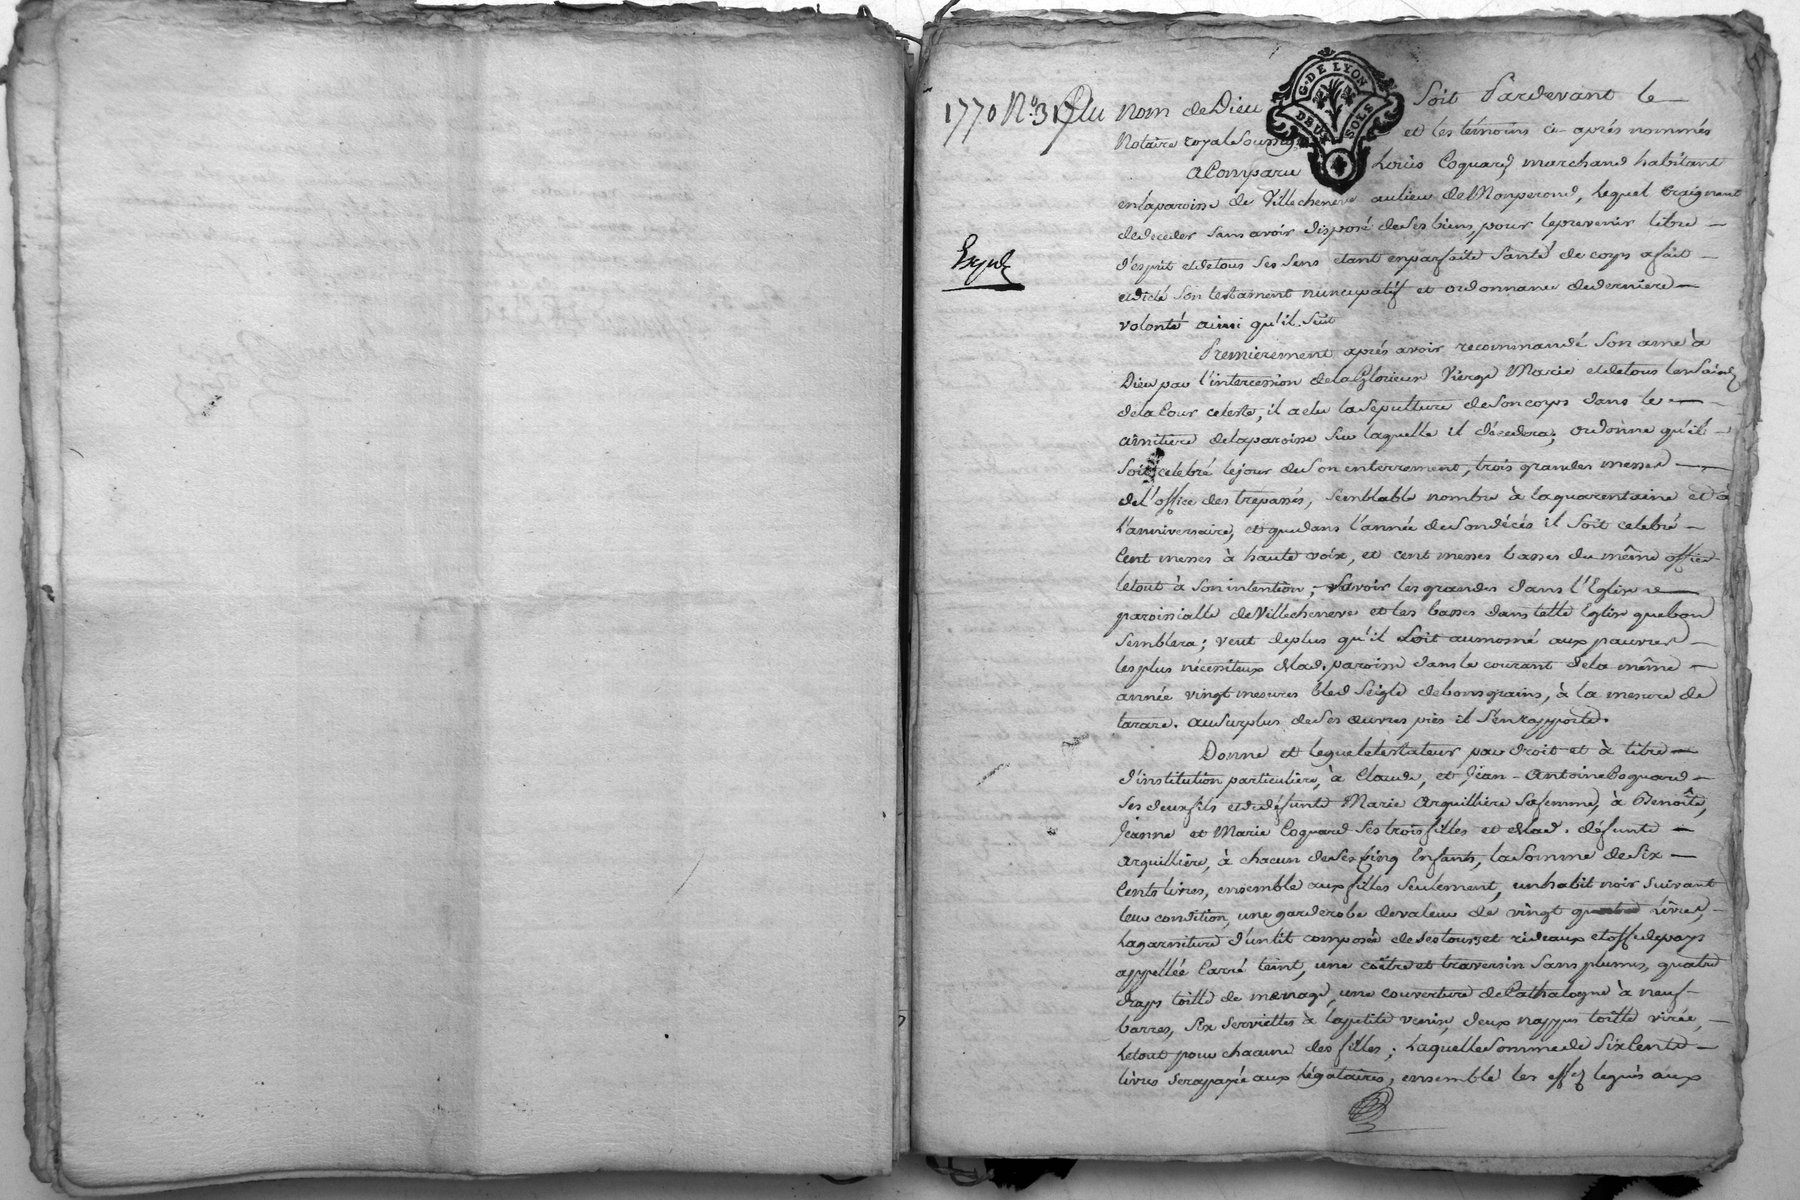 1770 N.º 31 Au nom de Dieu Soit Pardevant le
G. DE LYON
DEUX SOLS
Notaire royal Soussigné et les témoins ci-aprés nommés
a Comparu Loüis Coquard, marchand habitant
en laparoisse de Villecheneve au lieu de Monperond, Lequel Craignant
de deceder Sans avoir disposé de Ses biens, pour leprevenir libre
Expdé
d'esprit et de tous Ses Sens etant enparfaite Santé de corps a fait
et dicté Son testament nuncupatif et ordonnance de derniere
volonté ainsi qu'il Suit
Premierement aprés avoir recommandé Son ame à
Dieu par l'intercession de la Glorieuse Vierge Marie et de tous les Saints
de la Cour celeste, il a elu la Sepulture de Son corps dans le
cimitiere de laparoisse Sur laquelle il décedera; ordonne qu'il
Soit celebré le jour de Son enterrement, trois grandes messes
de l'office des trépassés, Semblable nombre à la quarentaine et à
l'anniversaire, et que dans l'année de Son décés il Soit celebré
Cent messes à haute voix, et cent messes basses du même office
le tout à Son intention; Savoir les grandes dans l'Eglise
paroissialle de Villecheneve et les basses dans telle Eglise que bon
Semblera; veut de plus qu'il Soit aumosné aux pauvres
les plus nécessiteux de lad. paroisse dans le courant de la même
année vingt mesures bled Seigle de bons grains, à la mesure de
tarare. au Surplus de Ses œuvres pies il S'en rapporte.
Donne et legue le testateur par droit et à titre
d'institution particuliere, à Claude, et Jean-Antoine Coquard
Ses deux fils et de défunte Marie Arquilliere Sa femme, à Benoîte,
Jeanne et Marie Coquard Ses trois filles et de lad. défunte
Arquilliere, à chacun de Ses Cinq Enfants, la Somme de Six
Cents livres, ensemble aux filles Seulement, un habit noir Suivant
leur condition, une garderobe de valeur de vingt quatre Livres,
La garniture d'un lit composé de Ses tours et rideaux etoffe de pays
appellée Carré teint, une coître et traversin Sans plumes, quatre
draps toille de menage, une couverture de Cathalogne à neuf
barres, Six Serviettes à la petite venise, deux nappes toille virée,
Le tout pour chacune des filles; Laquelle Somme de Six Cents
livres Sera payée aux Légataires, ensemble les effets legués aux